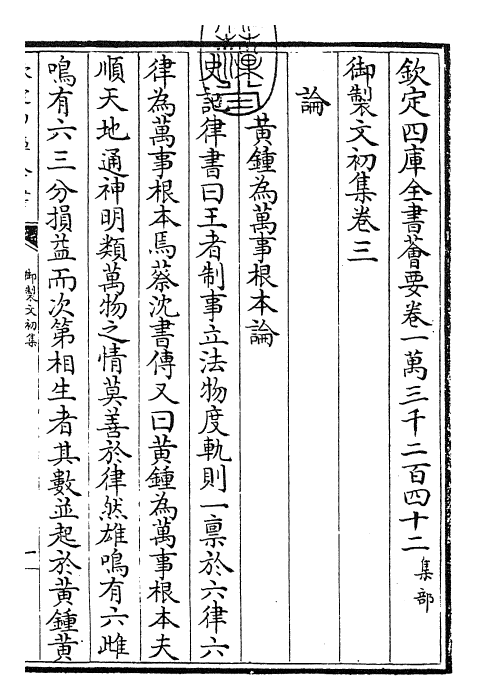 欽定四庫全書薈要卷一萬三千二百四十二 集部
御製文初集卷三
論
黃鍾為萬事根本論
史記律書曰王者制事立法物度軌則一禀於六律六
律為萬事根本焉蔡沈書傳又曰黃鍾為萬事根本夫
順天地通神明類萬物之情莫善於律然雄鳴有六雌
鳴有六三分損益而次第相生者其數並起於黃鍾黃
御製文初集
一